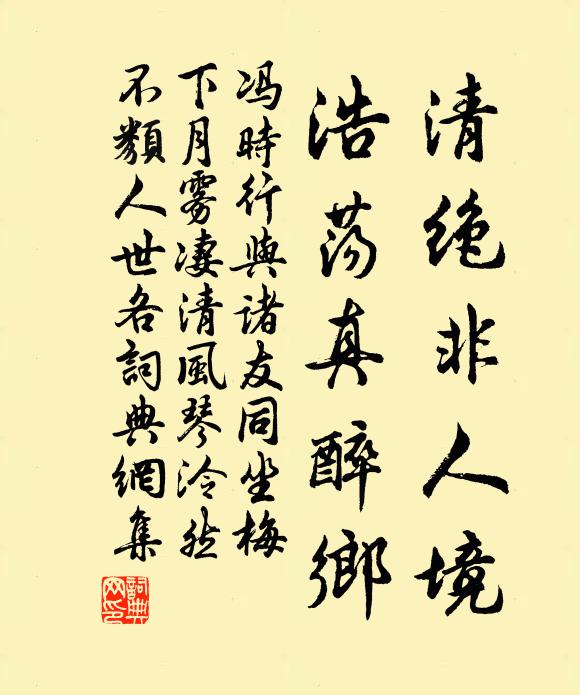 清絕非人境
浩蕩真醉鄉
馮時行與諸友同坐梅
下月霧淒清風琴泠然
不類人世各詞典網集
詞典
网印